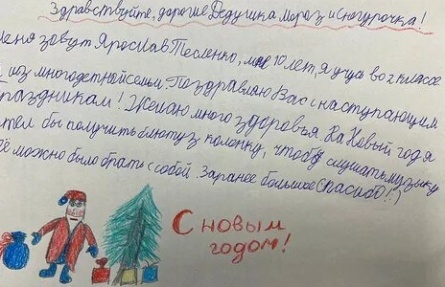 Здравствуйте, дорогие Дедушка Мороз и Снегурочка!
меня зовут Ярослав Тесленко, мне 10 лет, я учусь во 2 классе
из многодетной семьи. Поздравляю Вас с наступающим
праздникам! Желаю много здоровья. На Новый год я
хотел бы получить блютуз колонку, чтобы слушать музыку
её можно было брать с собой. Заранее большое спасибо!)
С новым
годом!